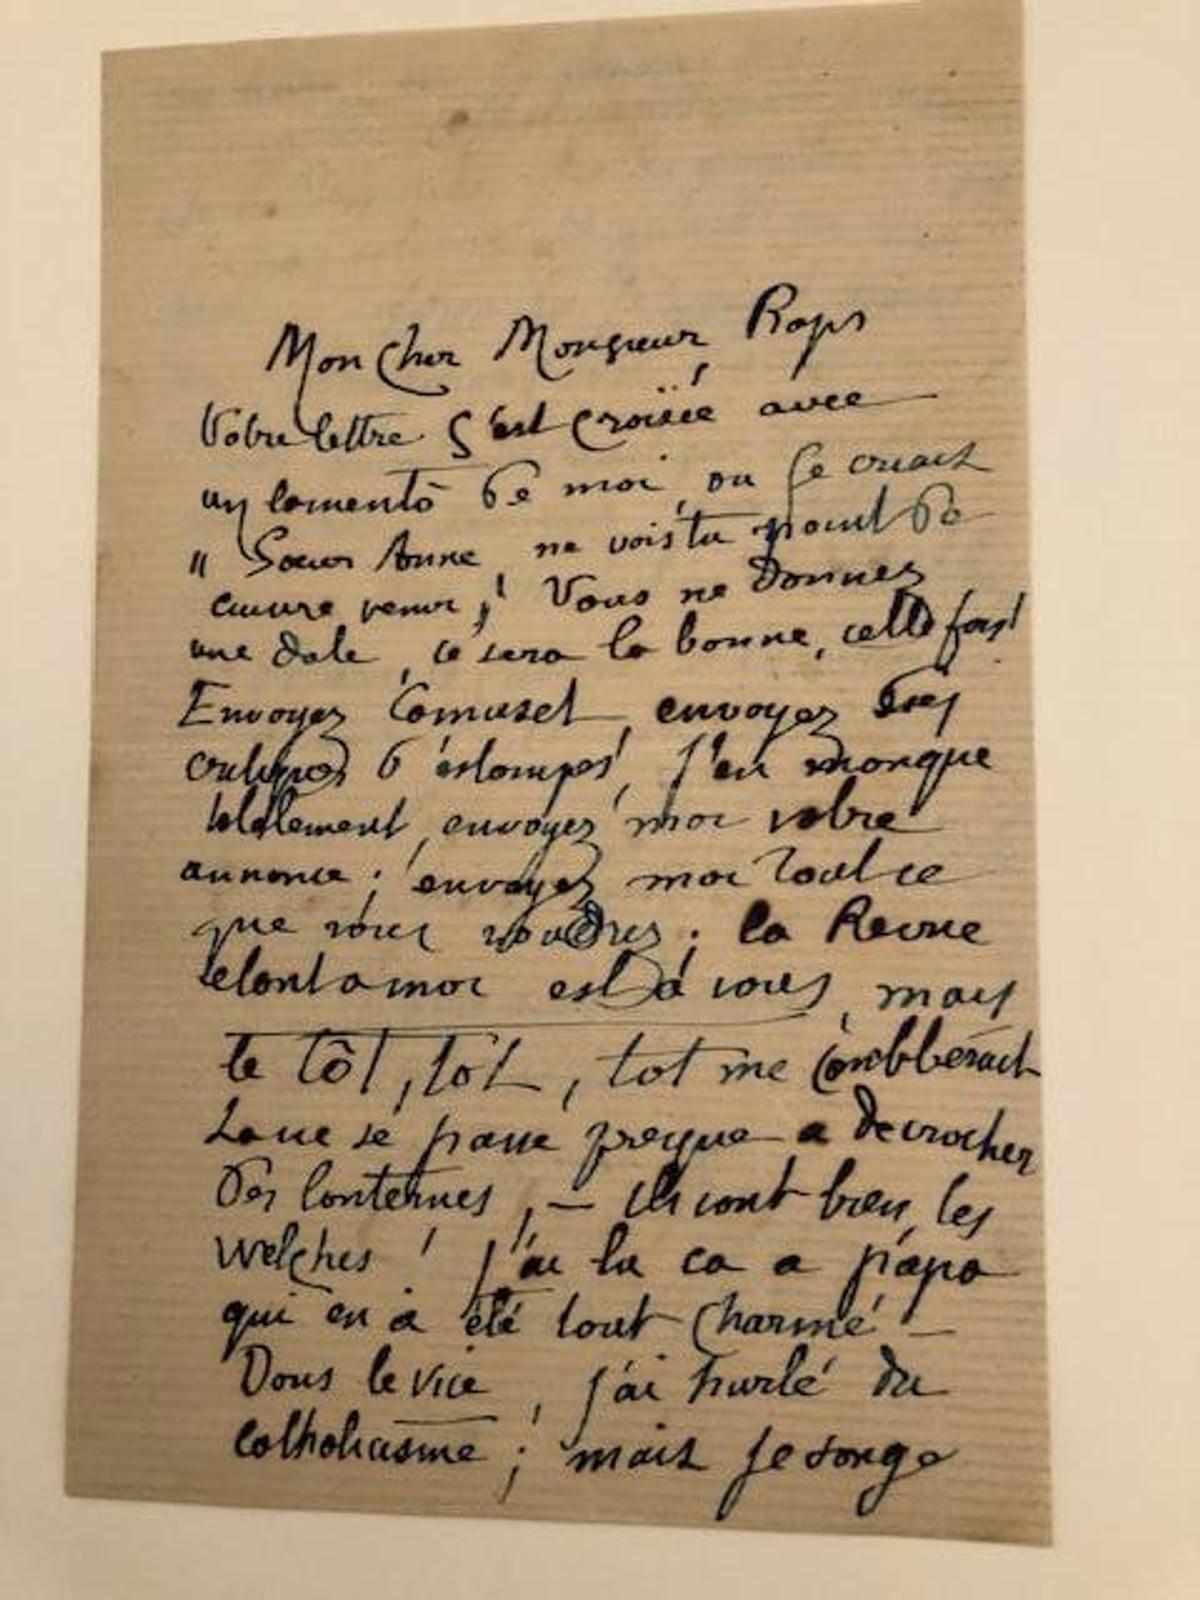 Mon Cher Monsieur Rops
Votre lettre s'est croisée avec
un lamento de moi, ou je criais
" Soeur Anne, ne vois tu point de
cuivre venir "! Vous me donnez
une date, ce sera la bonne, cette fois!
Envoyez Camuset, envoyez des
critiques d'estampes, j'en manque
totalement, envoyez moi votre
annonce; envoyez moi tout ce
que vous voudrez; la Revue
et à vous, mais
le tôt, tôt, tot me comblerait
se passe presque a decrocher
des lanternes, — ils vont bien, les
Welches! j'ai lu ca a papa
qui en a été tout charmé —
Dans le vice, j'ai hurlé du
catholicisme; mais je songe